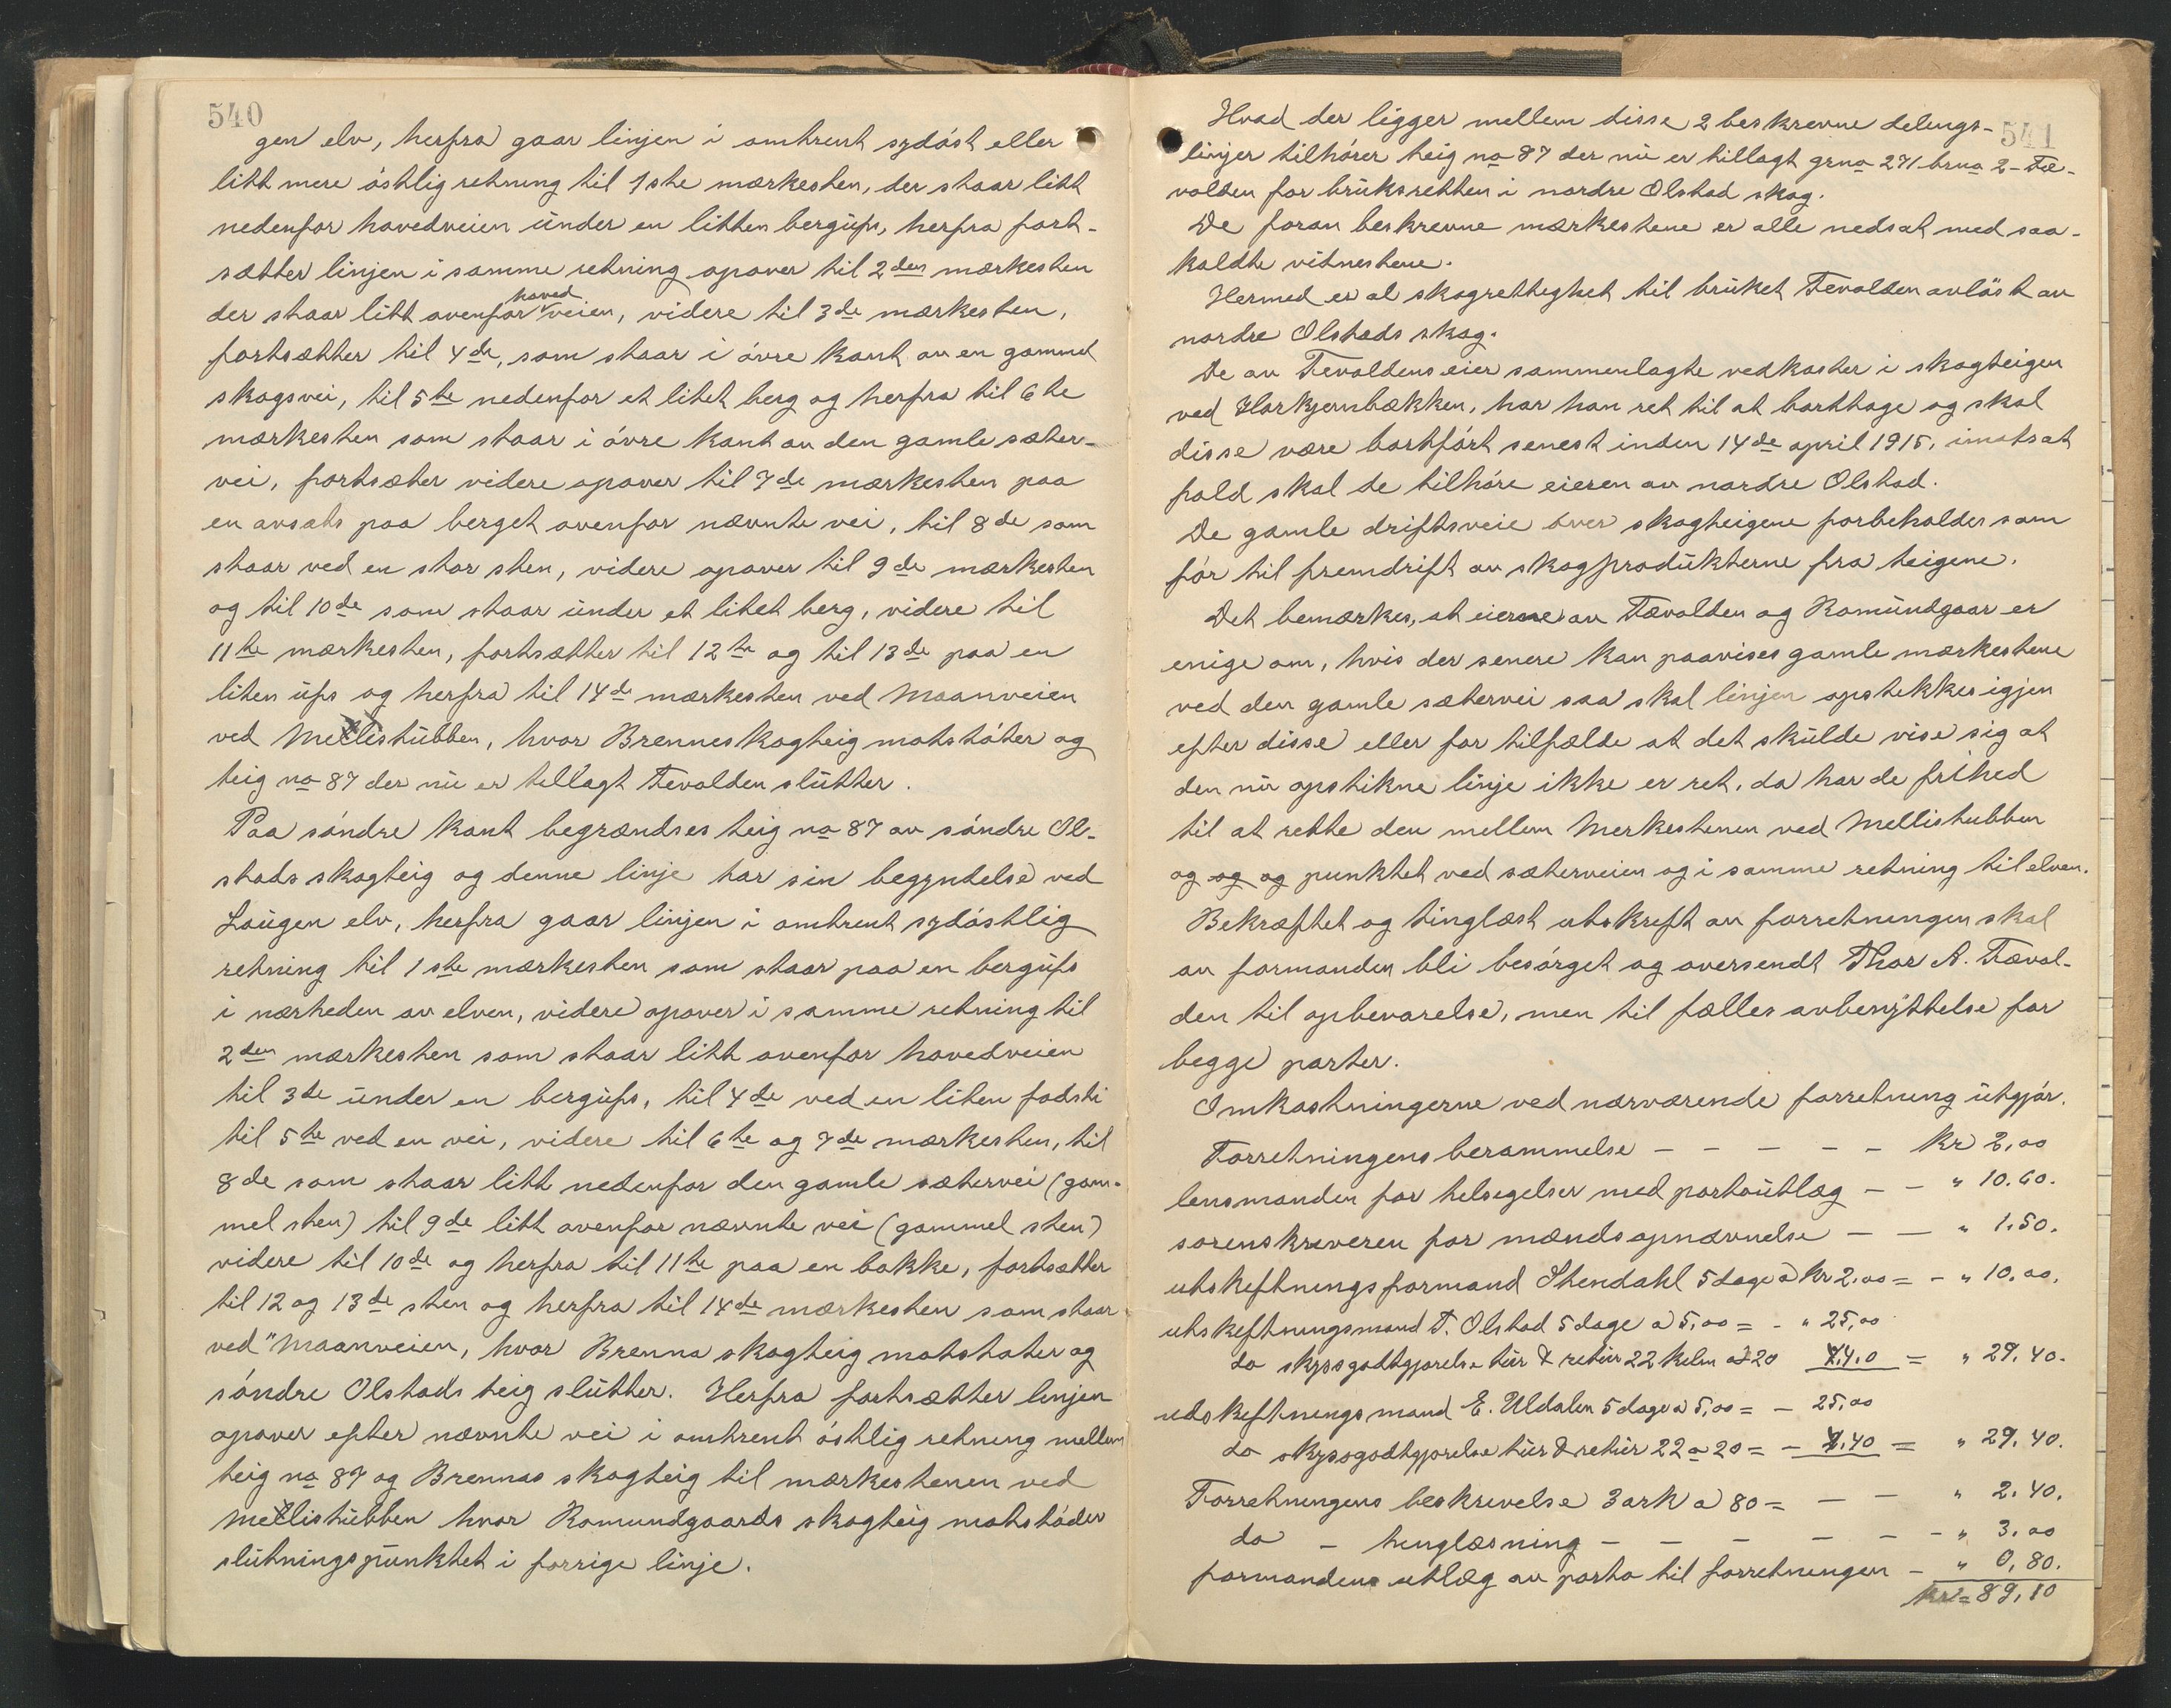 540
gen elv, herfra gaar linjen i omtrent sydöst eller
litt mere östlig retning til 1ste mærkesten, der staar litt
nedenfor hovedveien under en litten bergufs, herfra fort-
sætter linjen i samme retning opover til 2den mærkesten
der staar litt ovenfor hovedveien, videre til 3de mærkesten,
fortsætter til 4de, som staar i övre kant av en gammel
skogsvei, til 5te nedenfor et litet berg og herfra til 6te
mærkesten som staar i övre kant av den gamle sæter-
vei, fortsæter videre opover til 7de mærkesten paa
en avsats paa berget ovenfor nævnte vei, til 8de som
staar ved en stor sten, videre opover til 9de mærkesten
og til 10de som staar under et litet berg, videre til
11te mærkesten, fortsætter til 12te og til 13de paa en
liten ufs og herfra til 14de mærkesten ved Maanveien
ved Mellistubben, hvor Brenneskogteig motstöter og
teig no 87 der nu er tillagt Tevolden slutter.
Paa söndre kant begrændses teig no 87 av söndre Ol-
stads skogteig og denne linje har sin begyndelse ved
Lougen elv, herfra gaar linjen i omtrent sydöstlig
retning til 1ste mærkesten som staar paa en bergufs
i nærheden av elven, videre opover i samme retning til
2den mærkesten som staar litt ovenfor hovedveien
til 3de under en bergufs, til 4de ved en liten fodsti
til 5te ved en vei, videre til 6te og 7de mærkesten, til
8de som staar litt nedenfor den gamle sætervei (gam-
mel sten) til 9de litt ovenfor nævnte vei (gammel sten)
videre til 10de og herfra til 11te paa en bakke, fortsætter
til 12 og 13de sten og herfra til 14de mærkesten som staar
ved "Maanveien, hvor Brenna skogteig motstoter og
söndre Olstads teig slutter. Herfra fortsætter linjen
opover efter nævnte vei i omtrent östlig retning mellem
teig no 87 og Brennas skogteig til mærkestenen ved
Mellistubben hvor Romundgaards skogteig motstöder
slutningspunktet i forrige linje.
541
Hvad der ligger mellem disse 2 beskrevne delings-
linjer tilhörer teig no 87 der nu er tillagt grno 271 brno 2 - Tæ-
volden for bruksretten i nordre Olstad skog.
De foran beskrevne mærkestene er alle nedsat med saa-
kaldte vitnestene.
Hermed er al skogrettighet til bruket Tevolden avlöst av
nordre Olstads skog.
De av Tevoldens eier sammenlagte vedkaster i skogteigen
ved Horkjernbækken, har han ret til at borttage og skal
disse være bortfört senest inden 14de april 1915, imotsat
fald skal de tilhöre eieren av nordre Olstad.
De gamle driftsveie over skogteigene forbeholdes som
för til fremdrift av skogprodukterne fra teigene.
Det bemærkes, at eierne av Tævolden og Romundgaar er
enige om, hvis der senere kan paavises gamle mærkestene
ved den gamle sætervei saa skal linjen opstikkes igjen
efter disse eller for tilfælde at det skulde vise sig at
den nu opstikne linje ikke er ret, da har de frihed
til at rette den mellem Merkestenen ved Mellistubben
og og og punktet ved sæterveien og i samme retning til elven.
Bekræftet og tinglæst utskrift av forretningen skal
av formanden bli besörget og oversendt Thor A. Tævol-
den til opbevarelse, men til fælles avbenyttelse for
begge parter.
Omkostningerne ved nærværende forretning utgjör.
Forretningens berammelse - - - - - kr 2,00
lensmanden for helsegelser med portoutlæg - - " 10.60.
sorenskriveren for mændsopnævnelse - - " 1.50.
utskiftningsformand Stendahl 5 dage a kr 2.00 = - " 10,00.
utskiftningsmand T. Olstad 5 dage a 5,00 = - " 25,00
do skysgodtgjorelse tur & retur 22 kilm a 20 4.40 = " 29.40.
udskiftningsmand E. Uldalen 5 dage a 5,00 = - 25,00
do skysgodtgjorelse tur & retur 22 a 20 = - 4.40 = " 29.40.
Forretningens beskrivelse 3 ark a 80 = - - " 2.40.
do - tinglæsning - - - - - - " 3.00
formandens utlæg av porto til forretningen - " 0,80.
kr = 89,10